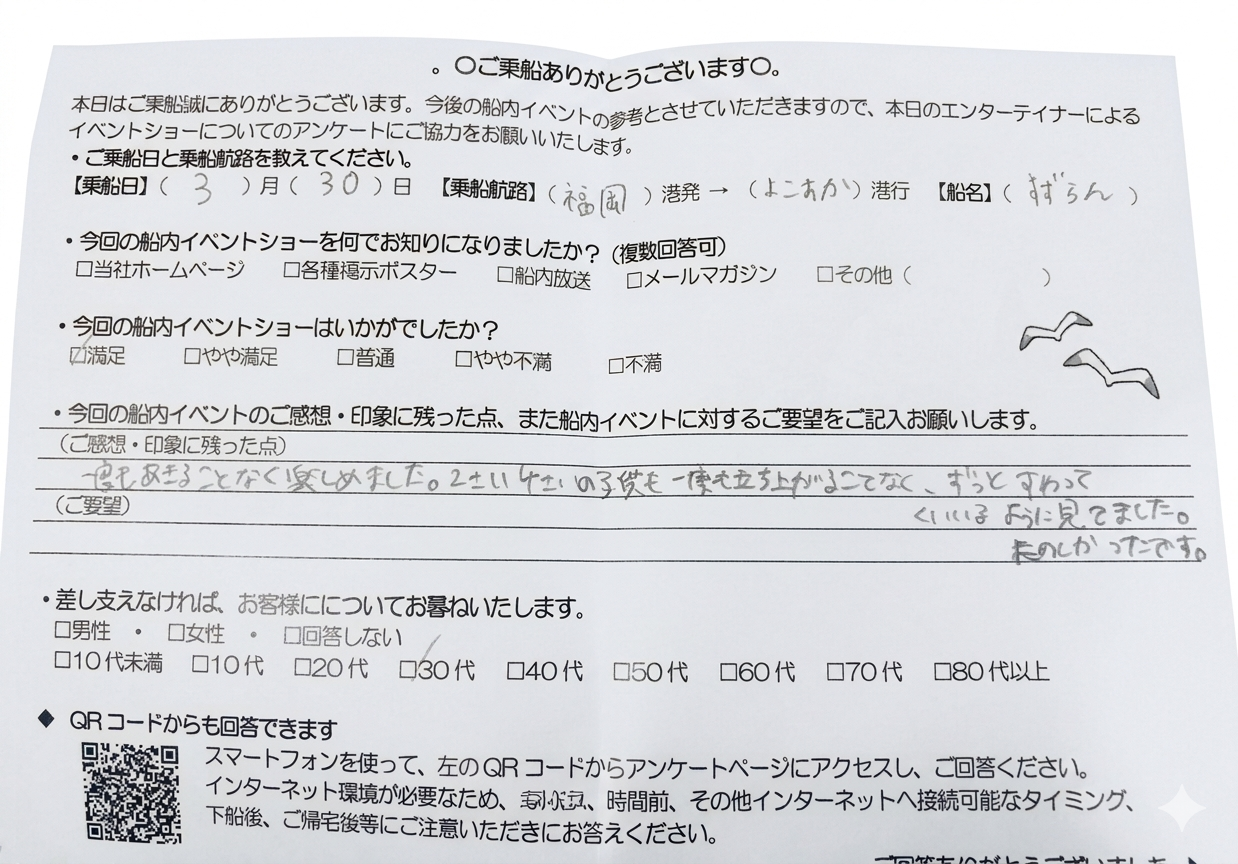 。〇ご乗船ありがとうございます〇。
本日はご乗船誠にありがとうございます。今後の船内イベントの参考とさせていただきますので、本日のエンターテイナーによる
イベントショーについてのアンケートにご協力をお願いいたします。
・ご乗船日と乗船航路を教えてください。
【乗船日】（ 3 ）月（ 30 ）日 【乗船航路】（ 福岡 ）港発 → （よこすか）港行 【船名】（ すずらん ）
・今回の船内イベントショーを何でお知りになりましたか？（複数回答可）
□当社ホームページ □各種掲示ポスター □船内放送 □メールマガジン □その他（ ）
・今回の船内イベントショーはいかがでしたか？
☑満足 □やや満足 □普通 □やや不満 □不満
・今回の船内イベントのご感想・印象に残った点、また船内イベントに対するご要望をご記入お願いします。
（ご感想・印象に残った点）
一度もあきることなく楽しめました。2さい4さいの子供も一度も立ち上がることなく、ずっとすわって
（ご要望）
くいいるように見てました。
たのしかったです。
・差し支えなければ、お客様にについてお尋ねいたします。
□男性 ・ □女性 ・ □回答しない
□10代未満 □10代 □20代 ☑30代 □40代 □50代 □60代 □70代 □80代以上
◆ QRコードからも回答できます
スマートフォンを使って、左のQRコードからアンケートページにアクセスし、ご回答ください。
インターネット環境が必要なため、、時間前、その他インターネットへ接続可能なタイミング、
下船後、ご帰宅後等にご注意いただきにお答えください。
ご回答ありがとうございました